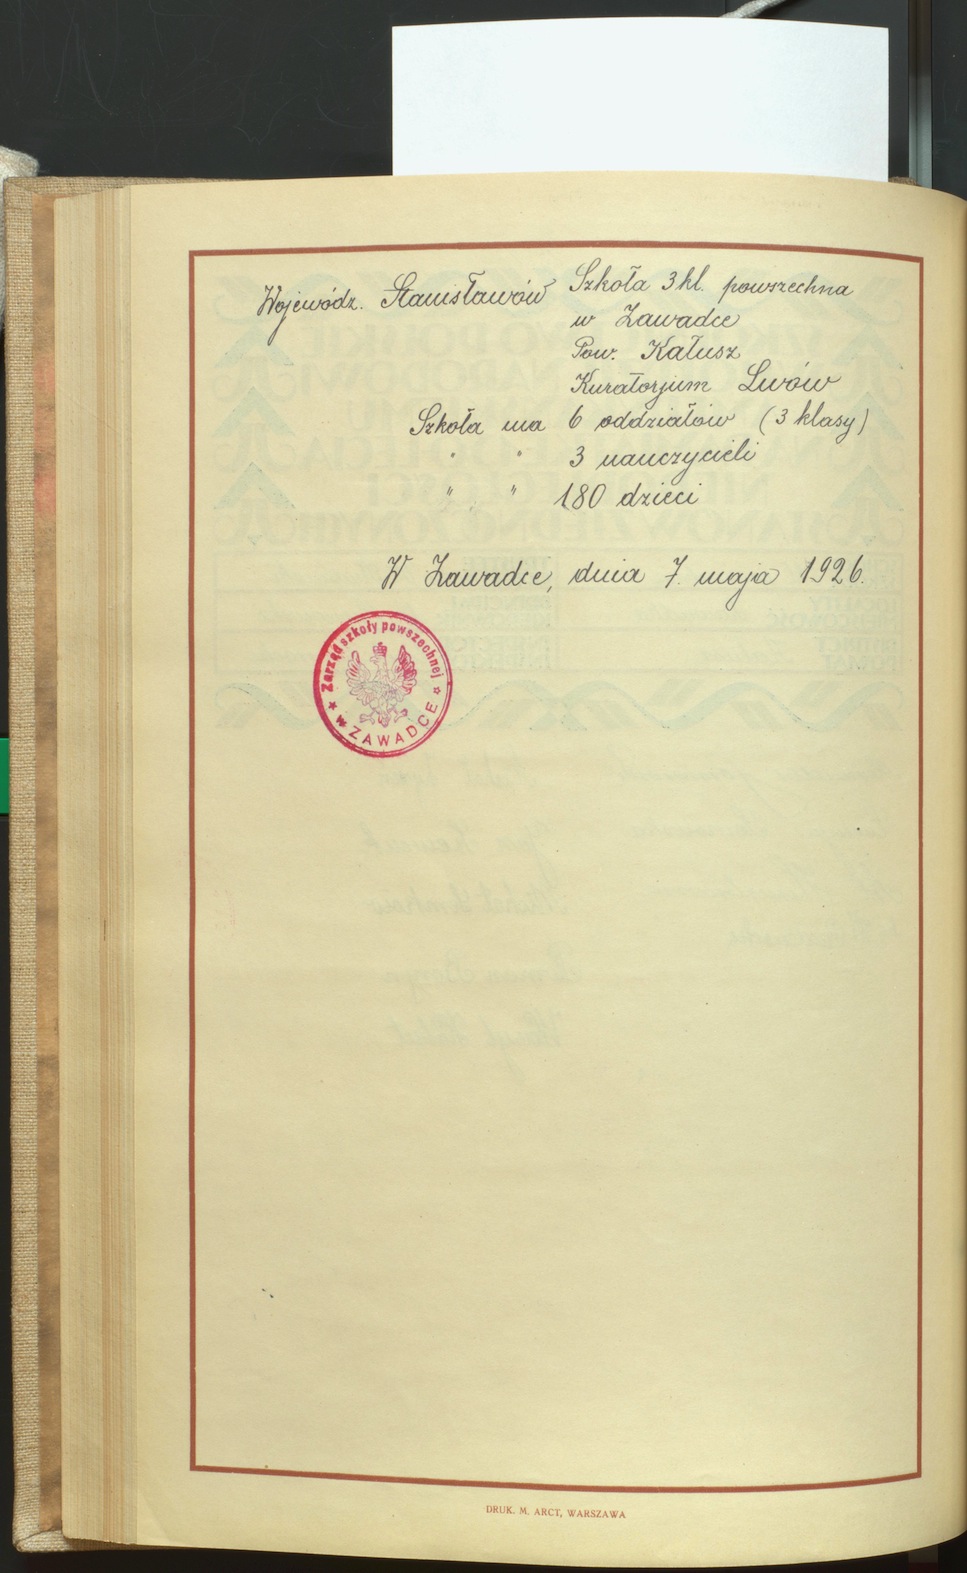 Wojewódz. Stanisławów Szkoła 3 kl. powszechna
w Zawadce
Pow. Kałusz
Kuratorjum Lwów
Szkoła ma 6 oddziałów (3 klasy)
" " 3 nauczycieli
" " 180 dzieci
W Zawadce, dnia 7. maja 1926.
Zarząd szkoły powszechnej
w ZAWADCE
DRUK. M. ARCT, WARSZAWA